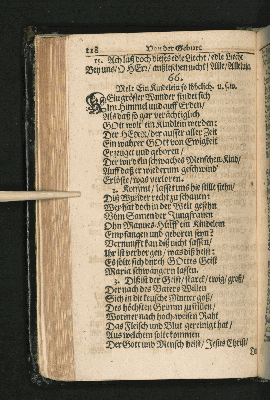 118 Von der Geburt
15. Ach laß doch dieses edle Liecht / edle Liecht
Bey uns / O HErr / auslöschen nicht / Alle / Alleluia
66.
Mel: Ein Kindelein so löbelich. u. s. w.
Ein grösser Wunder findet sich
Im Himmel und auff Erden /
Als daß so gar verächtiglich
GOtt wolt ein Kindlein werden:
Der HErr / der ausser aller Zeit
Ein wahrer GOtt von Ewigkeit
Erzeuget und geboren /
Der wird ein schwaches Menschen-Kind /
Auff daß er wiederum geschwind
Erlöste / was verloren.
2. Kommt / lasset uns hie stille stehn /
Diß Wunder recht zu schauen:
Wer hat doch in der Welt gesehn
Vom Samen der Jungfrauen
Ohn Mannes-Hülff ein Kindelein
Empfangen und geboren seyn?
Vernunfft kan diß nicht fassen /
Ihr ist verborgen / was diß heist:
Es solte sich durch GOttes Geist
Maria schwängern lassen.
3. Diß ist der Geist / starck / ewig / groß /
Der nach des Vaters Willen
Sich in die keusche Mutter goß /
Des höchsten Grimm zu stillen /
Worinner nach hochweisen Raht
Das Fleisch und Blut gereinigt hat /
Aus welchem solte kommen
Der Gott und Mensch heist / Jesus Christ /